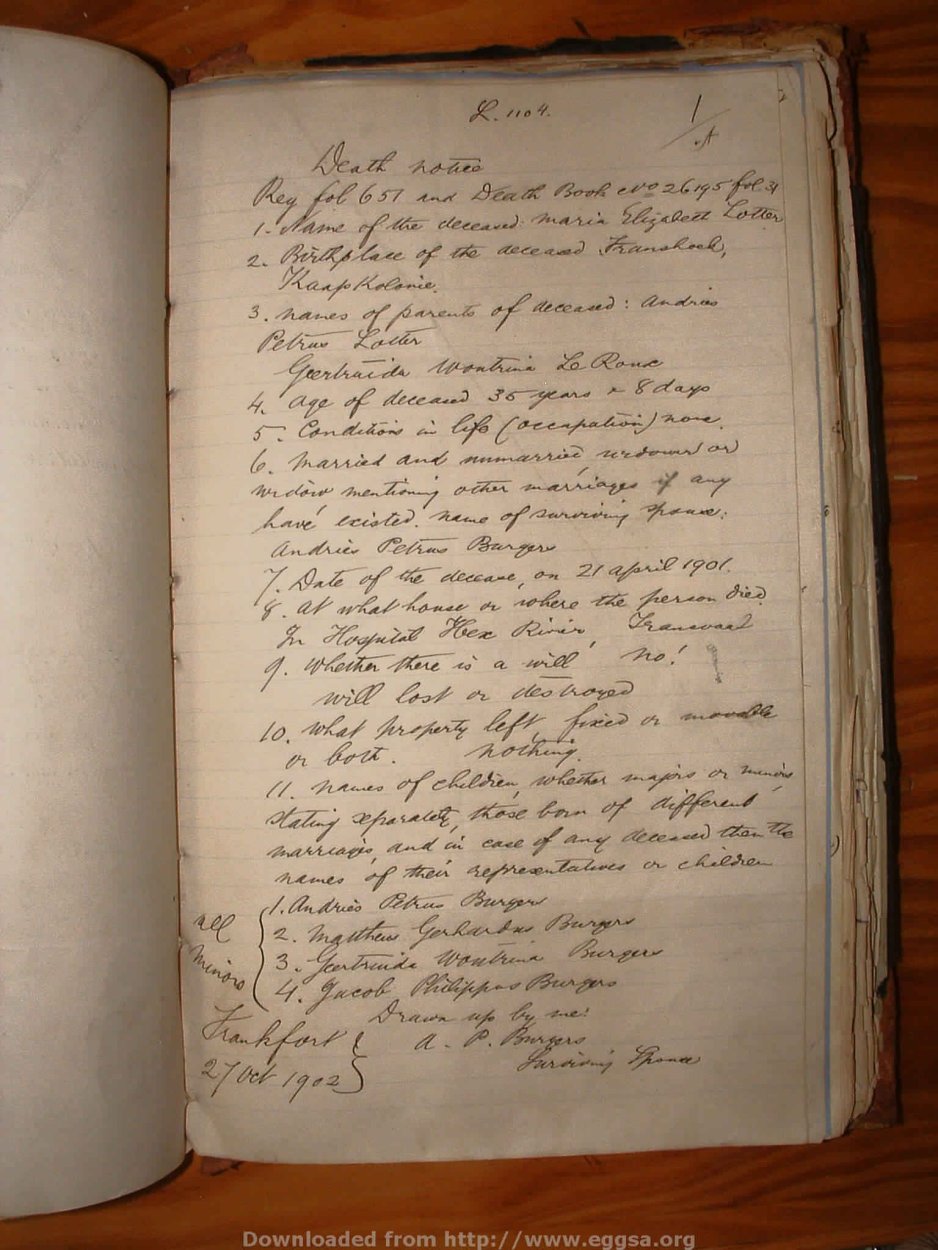 L. 1104.
1/A
Death notice
Reg fol 651 and Death Book No 26195 fol 31
1. Name of the deceased: Maria Elizabeth Lotter
2. Birthplace of the deceased Franshoek,
Kaap Kolonie.
3. names of parents of deceased: Andries
Petrus Lotter
Geertruida Woutrina Le Roux
4. age of deceased 35 years & 8 days
5. Conditions in life (occupation) none.
6. Married and unmarried widower or
widow mentioning other marriages if any
have existed. name of surviving spouse:
Andries Petrus Burgers
7. Date of the decease, on 21 april 1901.
8. at what house or where the person died
In Hospital Hex Rivier, Transvaal
9. Whether there is a will no!
will lost or destroyed
10. What property left, fixed or movable
or both. nothing.
11. names of children, whether majors or minors
stating separately, those born of different
marriages, and in case of any deceased then the
names of their representatives or children
1. Andries Petrus Burgers
2. Mattheus Gerhardus Burgers
3. Geertruida Woutrina Burgers
4. Jacob Philippus Burgers
all
minors
Drawn up by me:
Frankfort
A. P. Burgers
27 Oct 1902
Surviving Spouse
Downloaded from http://www.eggsa.org